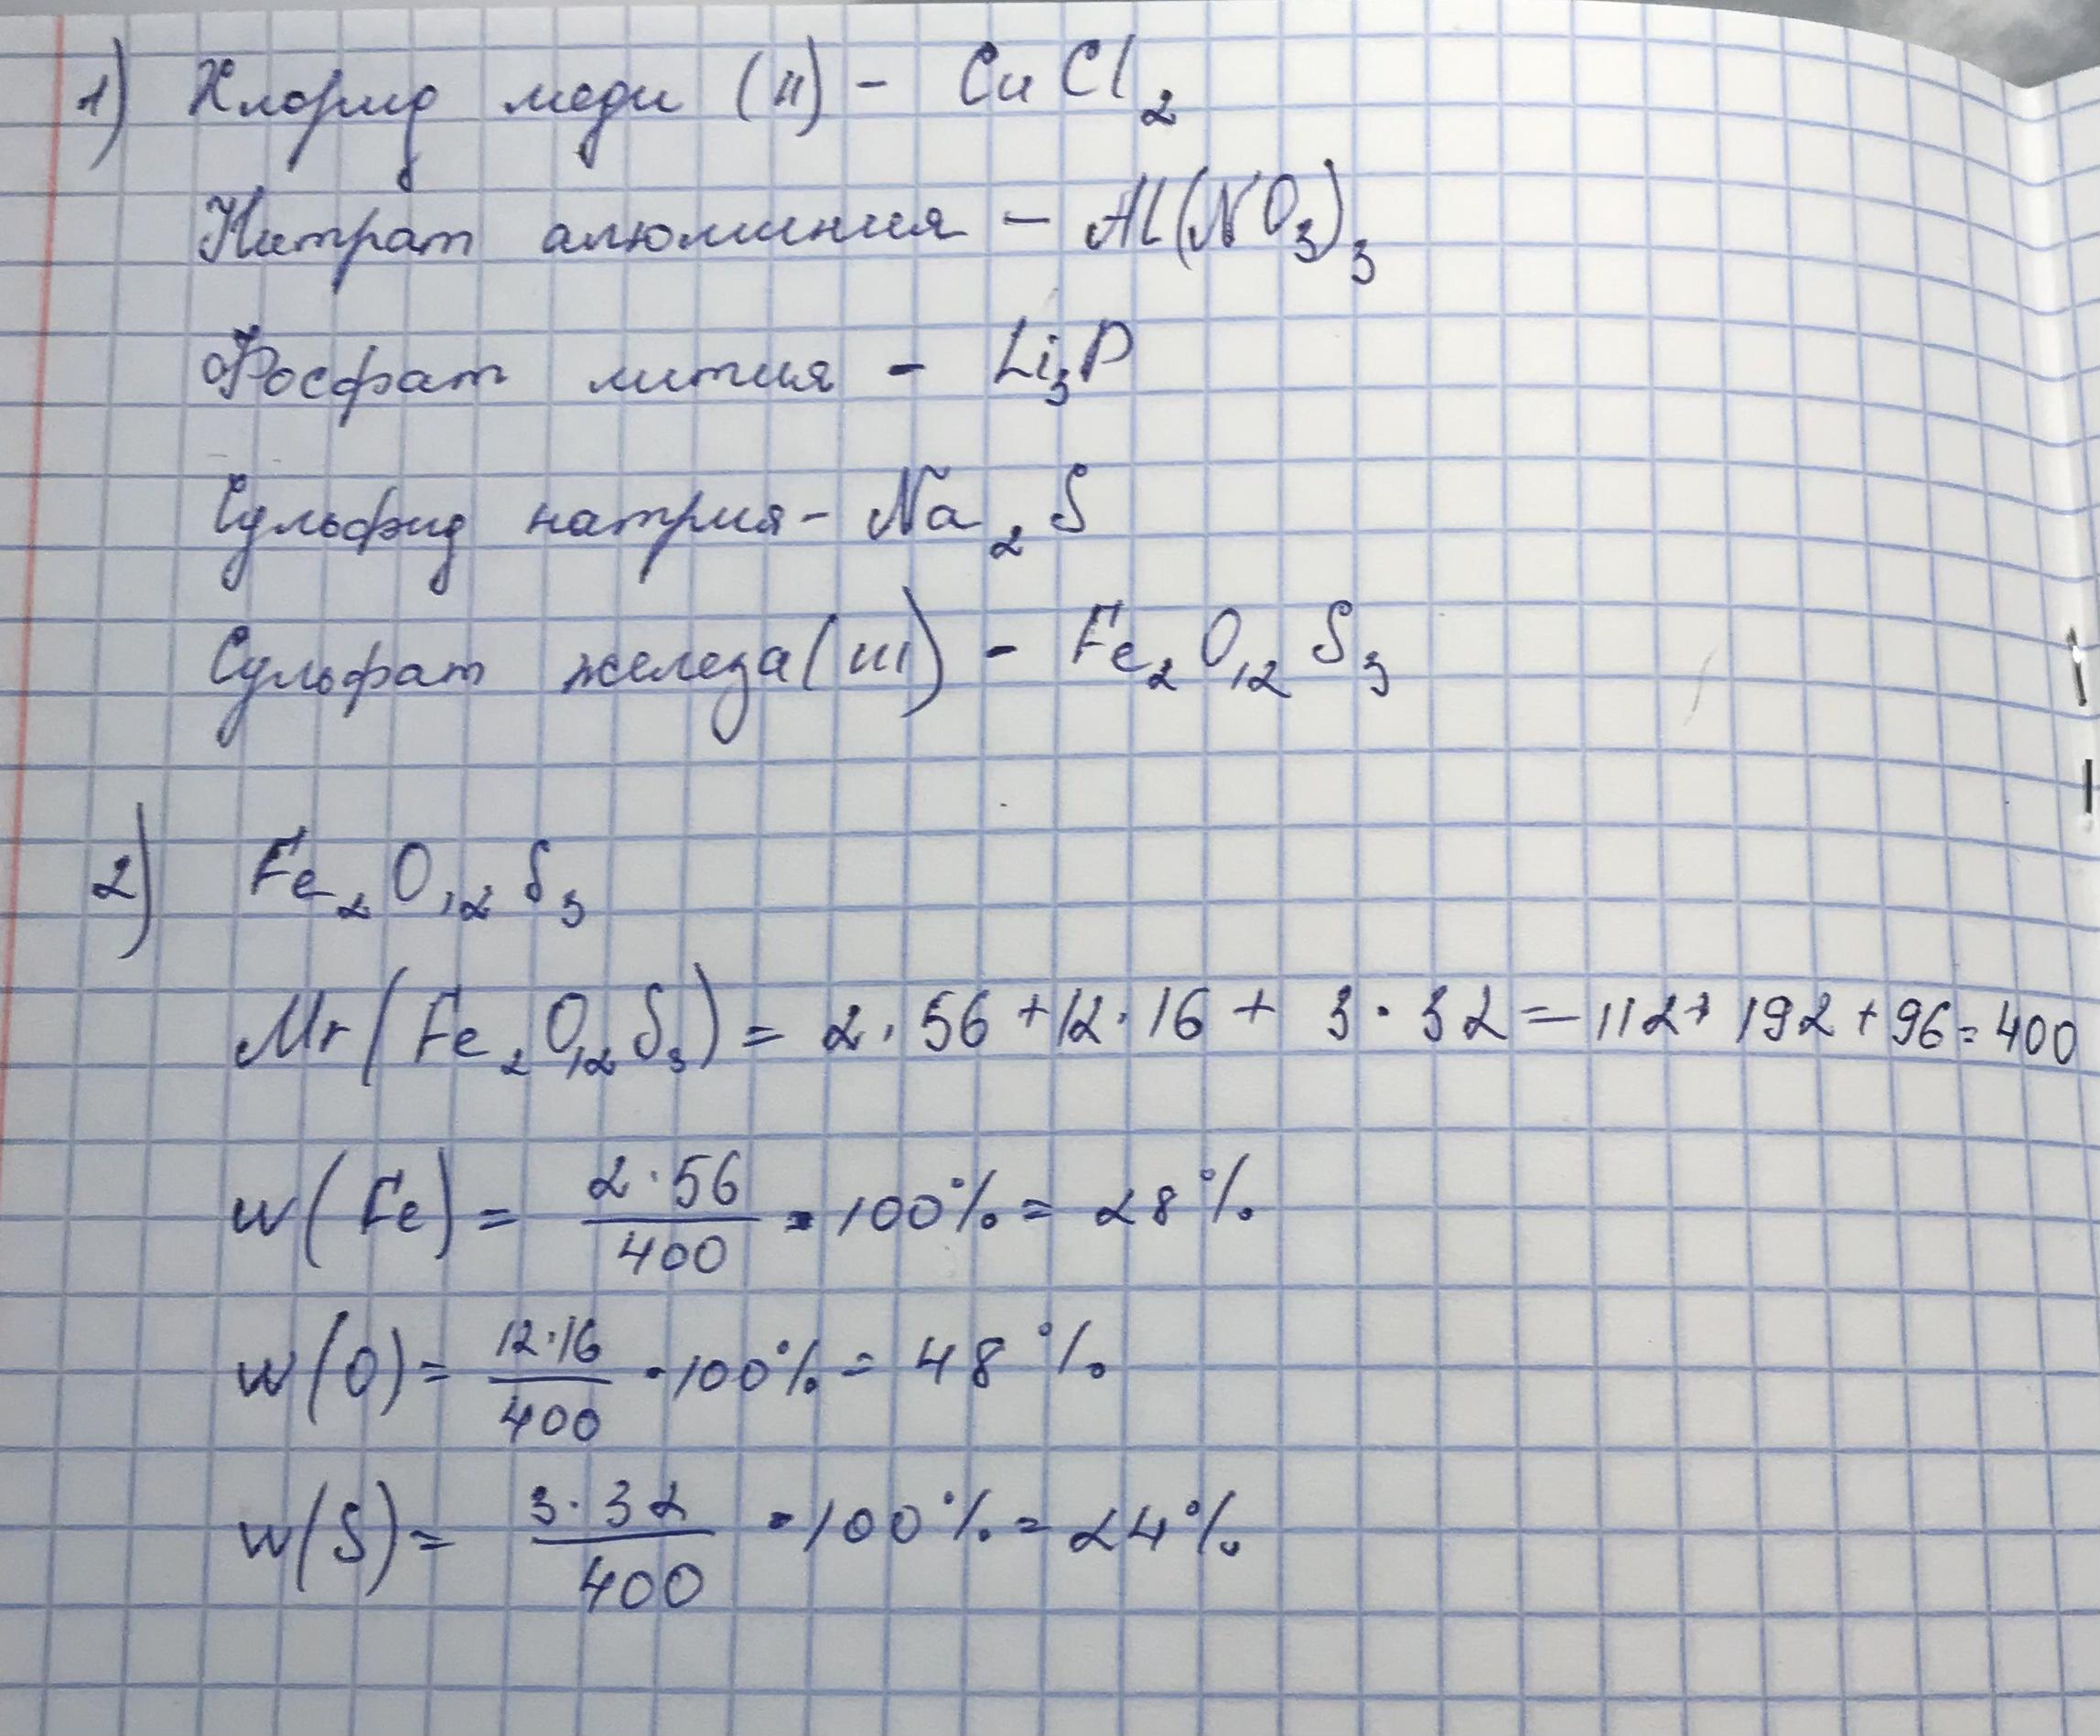 1) Хлорид меди (II) - CuCl₂
Нитрат алюминия - Al(NO₃)₃
Фосфат лития - Li₃P
Сульфид натрия - Na₂S
Сульфат железа (III) - Fe₂O₁₂S₃
2) Fe₂O₁₂S₃
Mr(Fe₂O₁₂S₃) = 2·56 + 12·16 + 3·32 = 112 + 192 + 96 = 400
w(Fe) = 2·56/400 · 100% = 28%
w(O) = 12·16/400 · 100% = 48%
w(S) = 3·32/400 · 100% = 24%